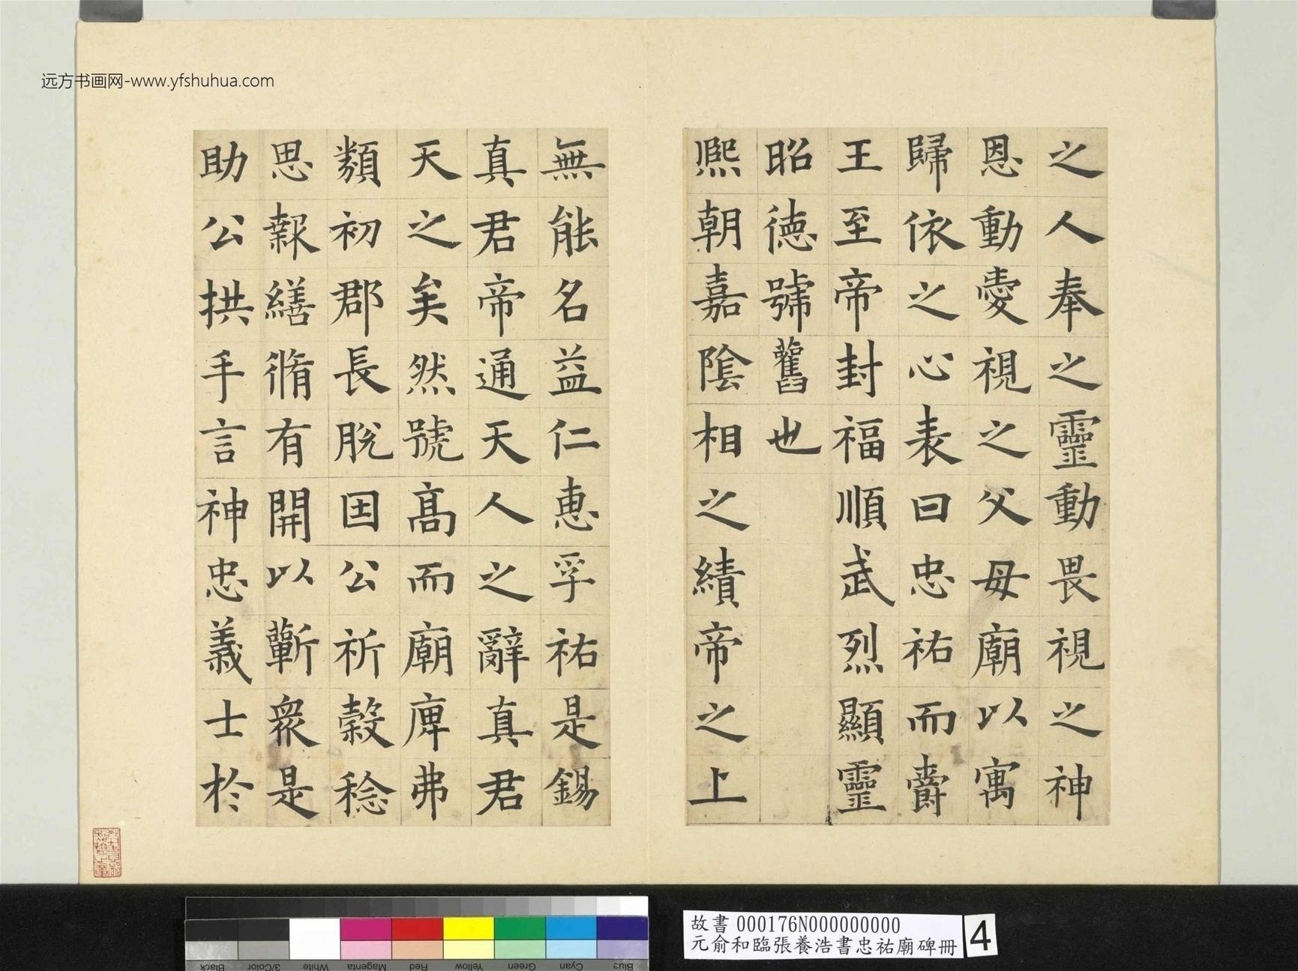 远方书画网-www.yfshuhua.com
之人奉之靈動畏視之神
恩動愛視之父母廟以寓
歸依之心表曰忠祐而爵
王至帝封福順武烈顯靈
昭德號舊也
熙朝嘉陰相之績帝之上
無能名益仁惠孚祐是錫
真君帝通天人之辭真君
天之矣然號高而廟庳弗
纇初郡長脫因公祈榖稔
思報繕脩有開以蘄衆是
助公拱手言神忠義士於
故書 000176N000000000
元俞和臨張養浩書忠祐廟碑冊
4
Black
3/Color
White
Magenta
Red
Yellow
Green
Cyan
Blue